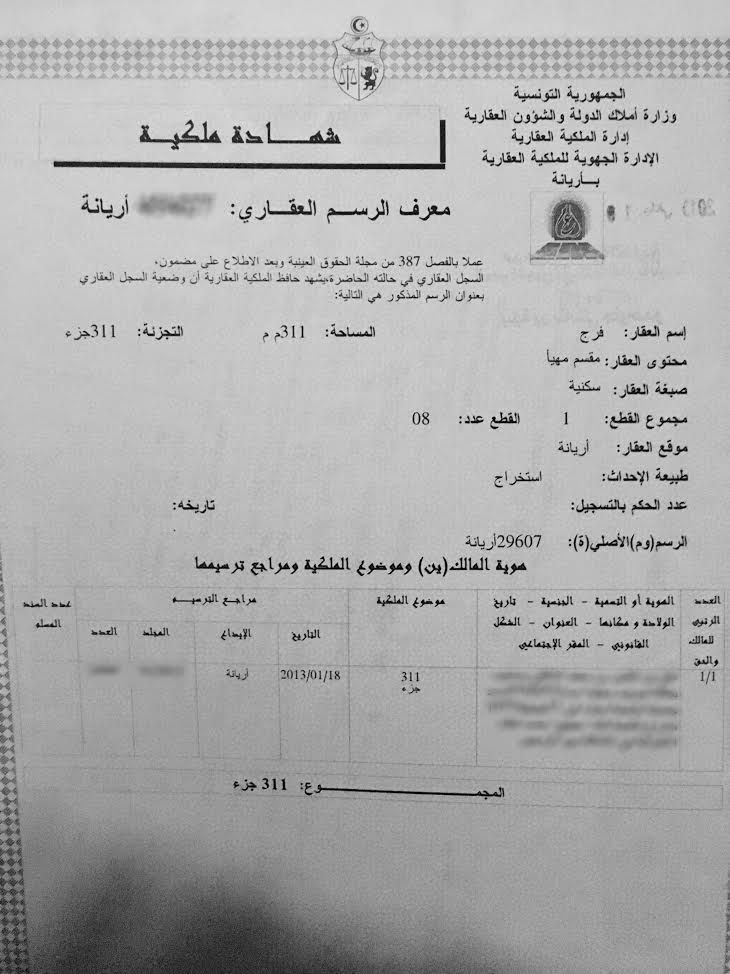 الجمهورية التونسية
وزارة أملاك الدولة والشؤون العقارية
إدارة الملكية العقارية
الإدارة الجهوية للملكية العقارية
بـأريانة
شهـــادة ملكيـــة
معرف الرسـم العقـاري: أريانة
عملا بالفصل 387 من مجلة الحقوق العينية وبعد الاطلاع على مضمون،
السجل العقاري في حالته الحاضرة،يشهد حافظ الملكية العقارية أن وضعية السجل العقاري
بعنوان الرسم المذكور هي التالية:
إسم العقار: فرج المساحة: 311م م التجزئة: 311جزء
محتوى العقار: مقسم مهيأ
صبغة العقار: سكنية
مجموع القطع: 1 القطع عدد: 08
موقع العقار: أريانة
طبيعة الإحداث: استخراج
عدد الحكم بالتسجيل: تاريخه:
الرسم(وم)الأصلي(ة): 29607أريانة
هوية المالك(ين) وموضوع الملكية ومراجع ترسيمها
العدد الرتبي للمالك والحق
الهوية أو التسمية - الجنسية - تاريخ
الولادة و مكانها - العنوان - الشكل
القانوني - المقر الإجتماعي
موضوع الملكية
مراجع الترسيـــم
التاريخ الإيداع المجلد العدد
عدد السند
المسلم
1/1 311 2013/01/18 أريانة
جزء
المجمـــــــــوع: 311 جزء